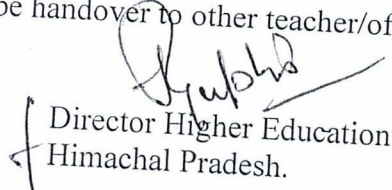 be handover to other teacher/of
Director Higher Education
Himachal Pradesh.